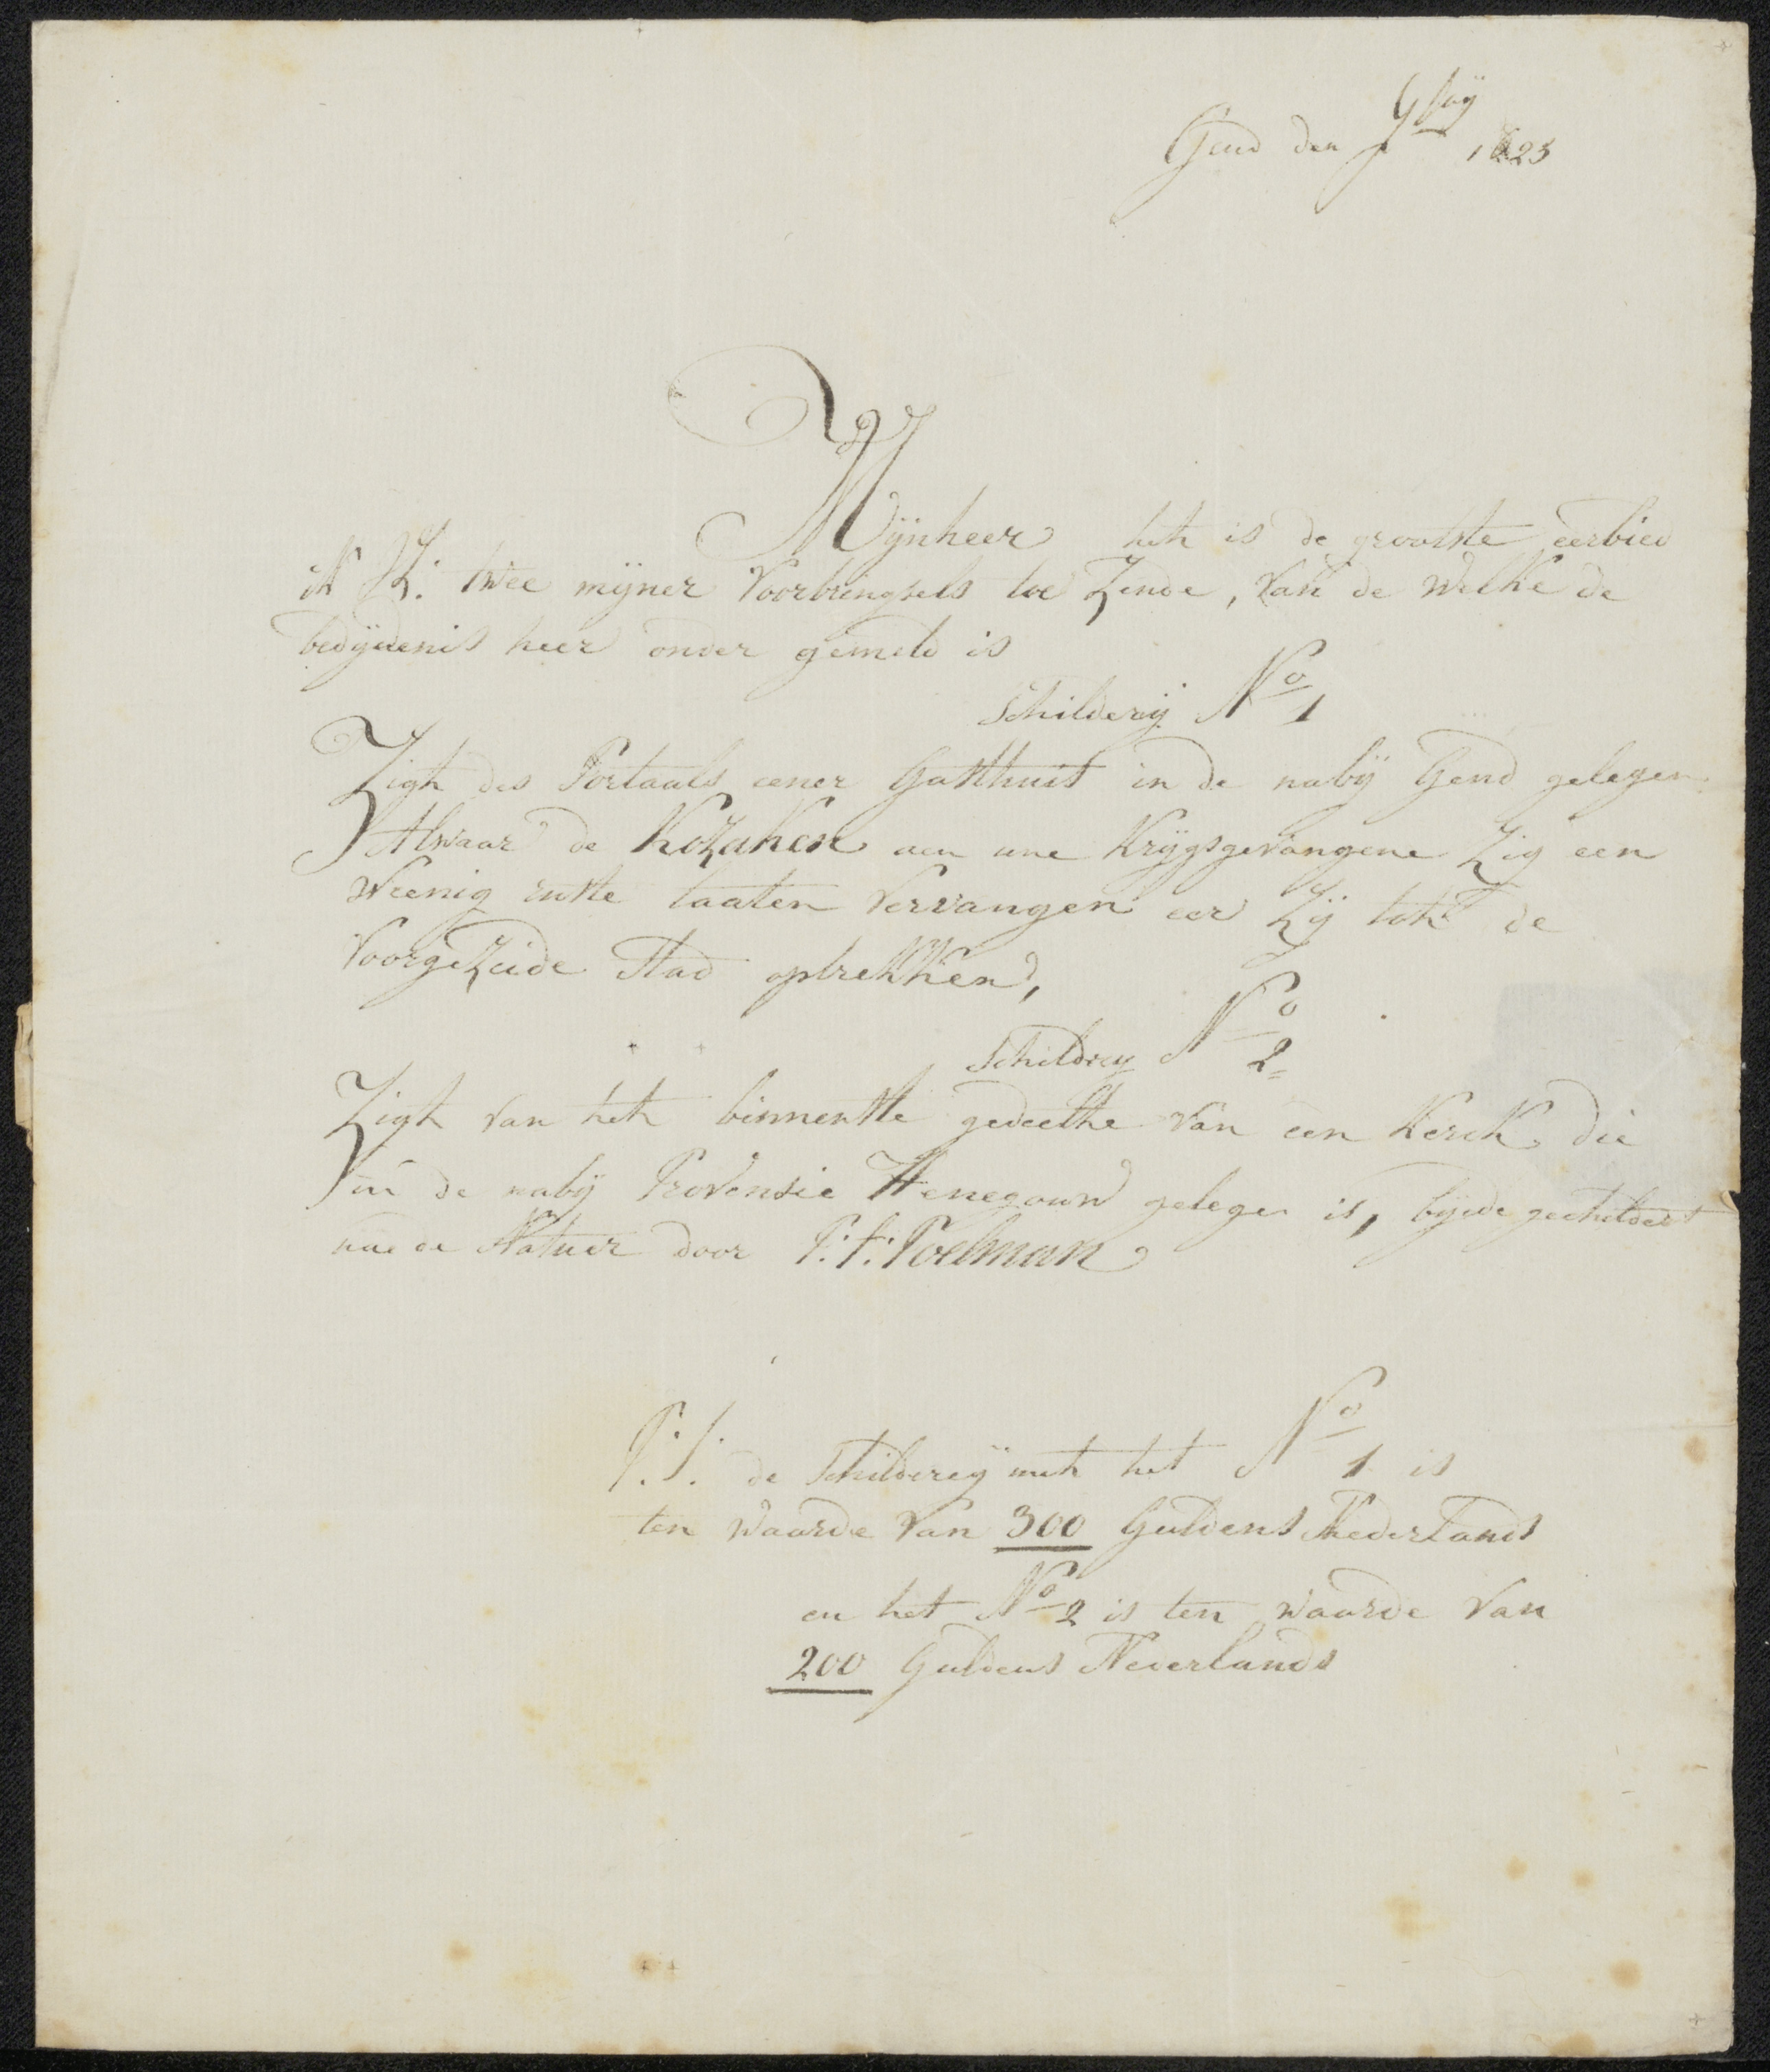 Gend den 1825
Mijnheer heh is de grootste eerbied
ik twee mijner voorbringsels toe Zende, van de welke de
bedijdenis heer onder gemeld is
Schilderij No 1
Zigh des Portaals eener Gasthuis in de nabij Gend gelegen
Alwaar de Kozaken aen une Krijgsgevangene Zig een
weenig ruste laaten vervangen eer Zij toht de
voorgezeide stad optrekken,
Schildrey No 2
Zigh van heh binnentste gedeelthe van een Kerck die
in de nabij Provensie Henegouw gelegen is, bijede geschildert
nae de Natuer door P:f: Poelman
P.S. de schilderey meth het No 1 is
ten waarde van 300 Guldens Nederlands
en het No 2 is ten waarde van
200 Guldens Nederlands